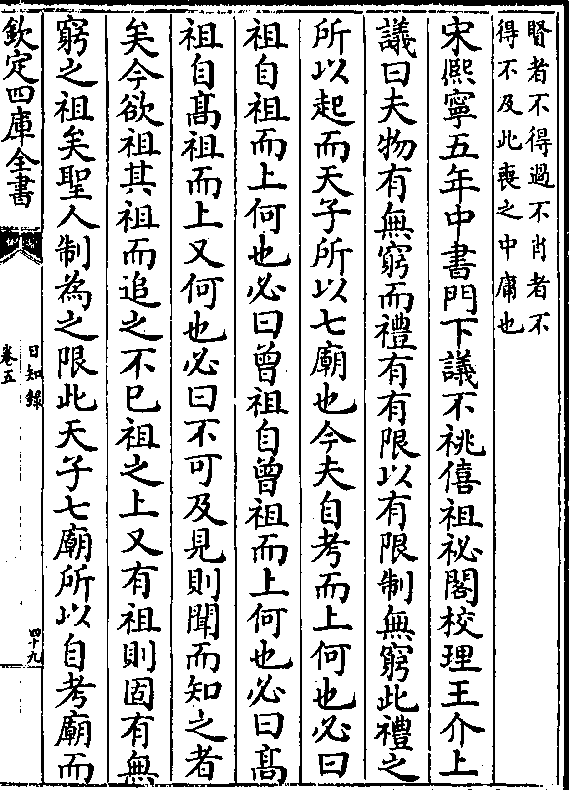 賢者不得過不肖者不
得不及此喪之中庸也
宋熈寧五年中書門下議不祧僖祖祕閣校理王介上
議曰夫物有無窮而禮有有限以有限制無窮此禮之
所以起而天子所以七廟也今夫自考而上何也必曰
祖自祖而上何也必曰曾祖自曾祖而上何也必曰髙
祖自髙祖而上又何也必曰不可及見則聞而知之者
矣今欲祖其祖而追之不已祖之上又有祖則固有無
窮之祖矣聖人制為之限此天子七廟所以自考廟而
欽定四庫全書
日知錄
卷五
四十九